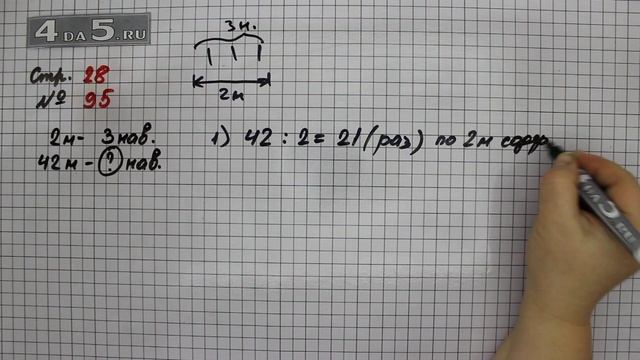 4DA5.RU
3н.
Стр. 28
№ 95
2м
2м - 3 нав.
42м - ? нав.
1) 42 : 2 = 21 (раз) по 2м содер
4DA5.RU